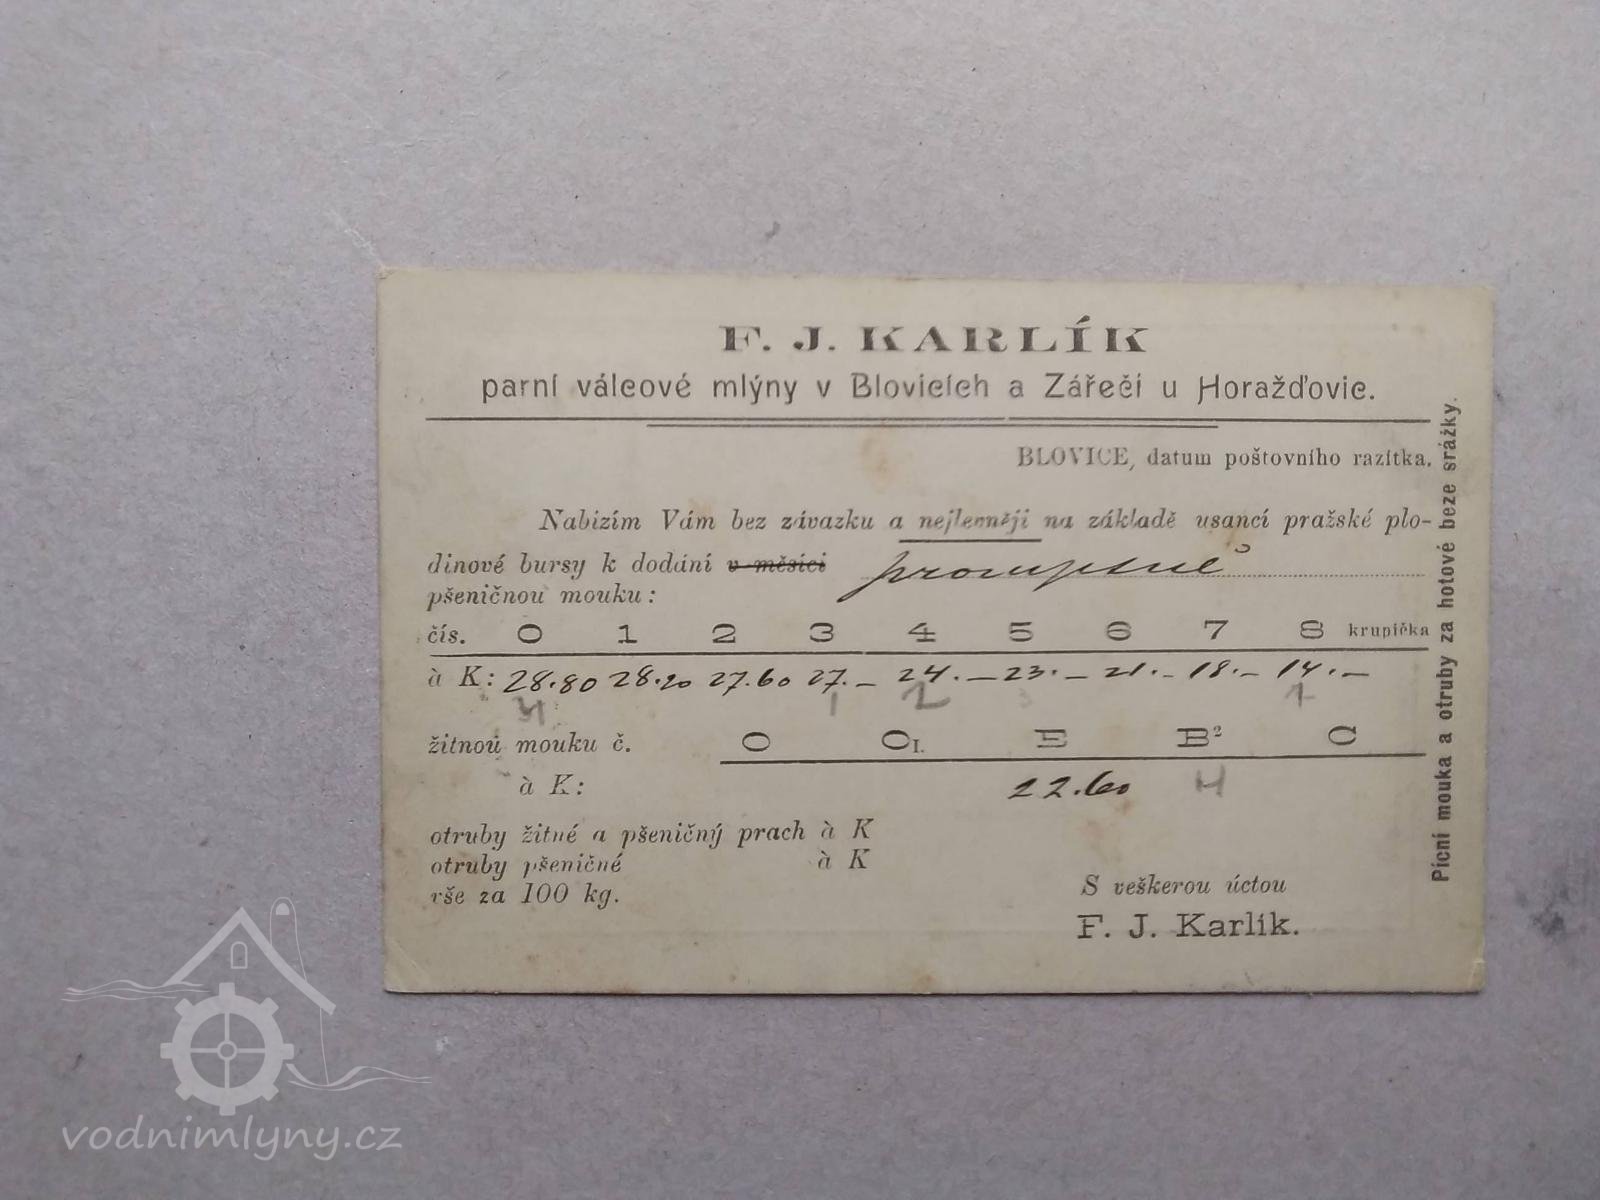 F. J. KARLÍK
parní válcové mlýny v Blovicích a Zářečí u Horažďovic.
BLOVICE, datum poštovního razítka.
Nabizím Vám bez závazku a nejlevněji na základě usancí pražské plo-
dinové bursy k dodání v měsíci promptně
pšeničnou mouku:
čís. 0 1 2 3 4 5 6 7 8 krupička
à K: 28.80 28.20 27.60 27.– 24.– 23.– 21.– 18.– 14.–
4 1 2 3 1
žitnou mouku č. 0 0I. E B² C
à K: 22.60 4
otruby žitné a pšeničný prach à K
otruby pšeničné à K
vše za 100 kg.
S veškerou úctou
F. J. Karlík.
Pícní mouka a otruby za hotové beze srážky.
vodnimlyny.cz